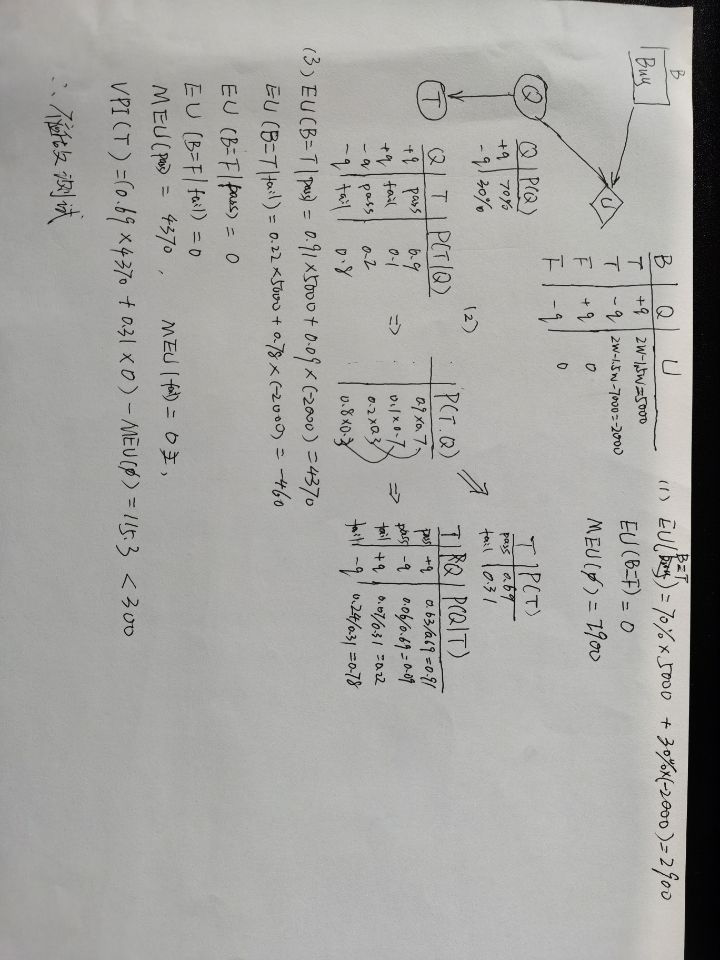 B
Buy
Q
T
U
Q | P(Q)
+q | 70%
-q | 30%
B | Q | U
T | +q | 2W-1.5W=5000
T | -q | 2W-1.5W-7000=-2000
F | +q | 0
F | -q | 0
(1) EU(B=T)=70%×5000 + 30%×(-2000)=2900
EU(B=F)=0
MEU(ø)=2900
(2)
Q | T | P(T|Q)
+q | pass | 0.9
+q | fail | 0.1
-q | pass | 0.2
-q | fail | 0.8
⇒
P(T.Q)
0.9×0.7
0.1×0.7
0.2×0.3
0.8×0.3
⇒
T | P(T)
pass | 0.69
fail | 0.31
⇒
T | Q | P(Q|T)
pass | +q | 0.63/0.69=0.91
pass | -q | 0.06/0.69=0.09
fail | +q | 0.07/0.31=0.22
fail | -q | 0.24/0.31=0.78
(3) EU(B=T|pass)=0.91×5000+0.09×(-2000)=4370
EU(B=T|fail)=0.22×5000+0.78×(-2000)=-460
EU(B=F|pass)=0
EU(B=F|fail)=0
MEU(pass)=4370, MEU(fail)=0
VPI(T)=(0.69×4370+0.31×0)-MEU(ø)=115.3<300
∴ 测试